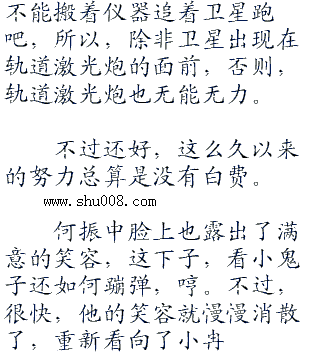 不能搬着仪器追着卫星跑
吧，所以，除非卫星出现在
轨道激光炮的面前，否则，
轨道激光炮也无能无力。
不过还好，这么久以来
的努力总算是没有白费。
www.shu008.com
何振中脸上也露出了满
意的笑容，这下子，看小鬼
子还如何蹦弹，哼。不过，
很快，他的笑容就慢慢消散
了，重新看向了小冉